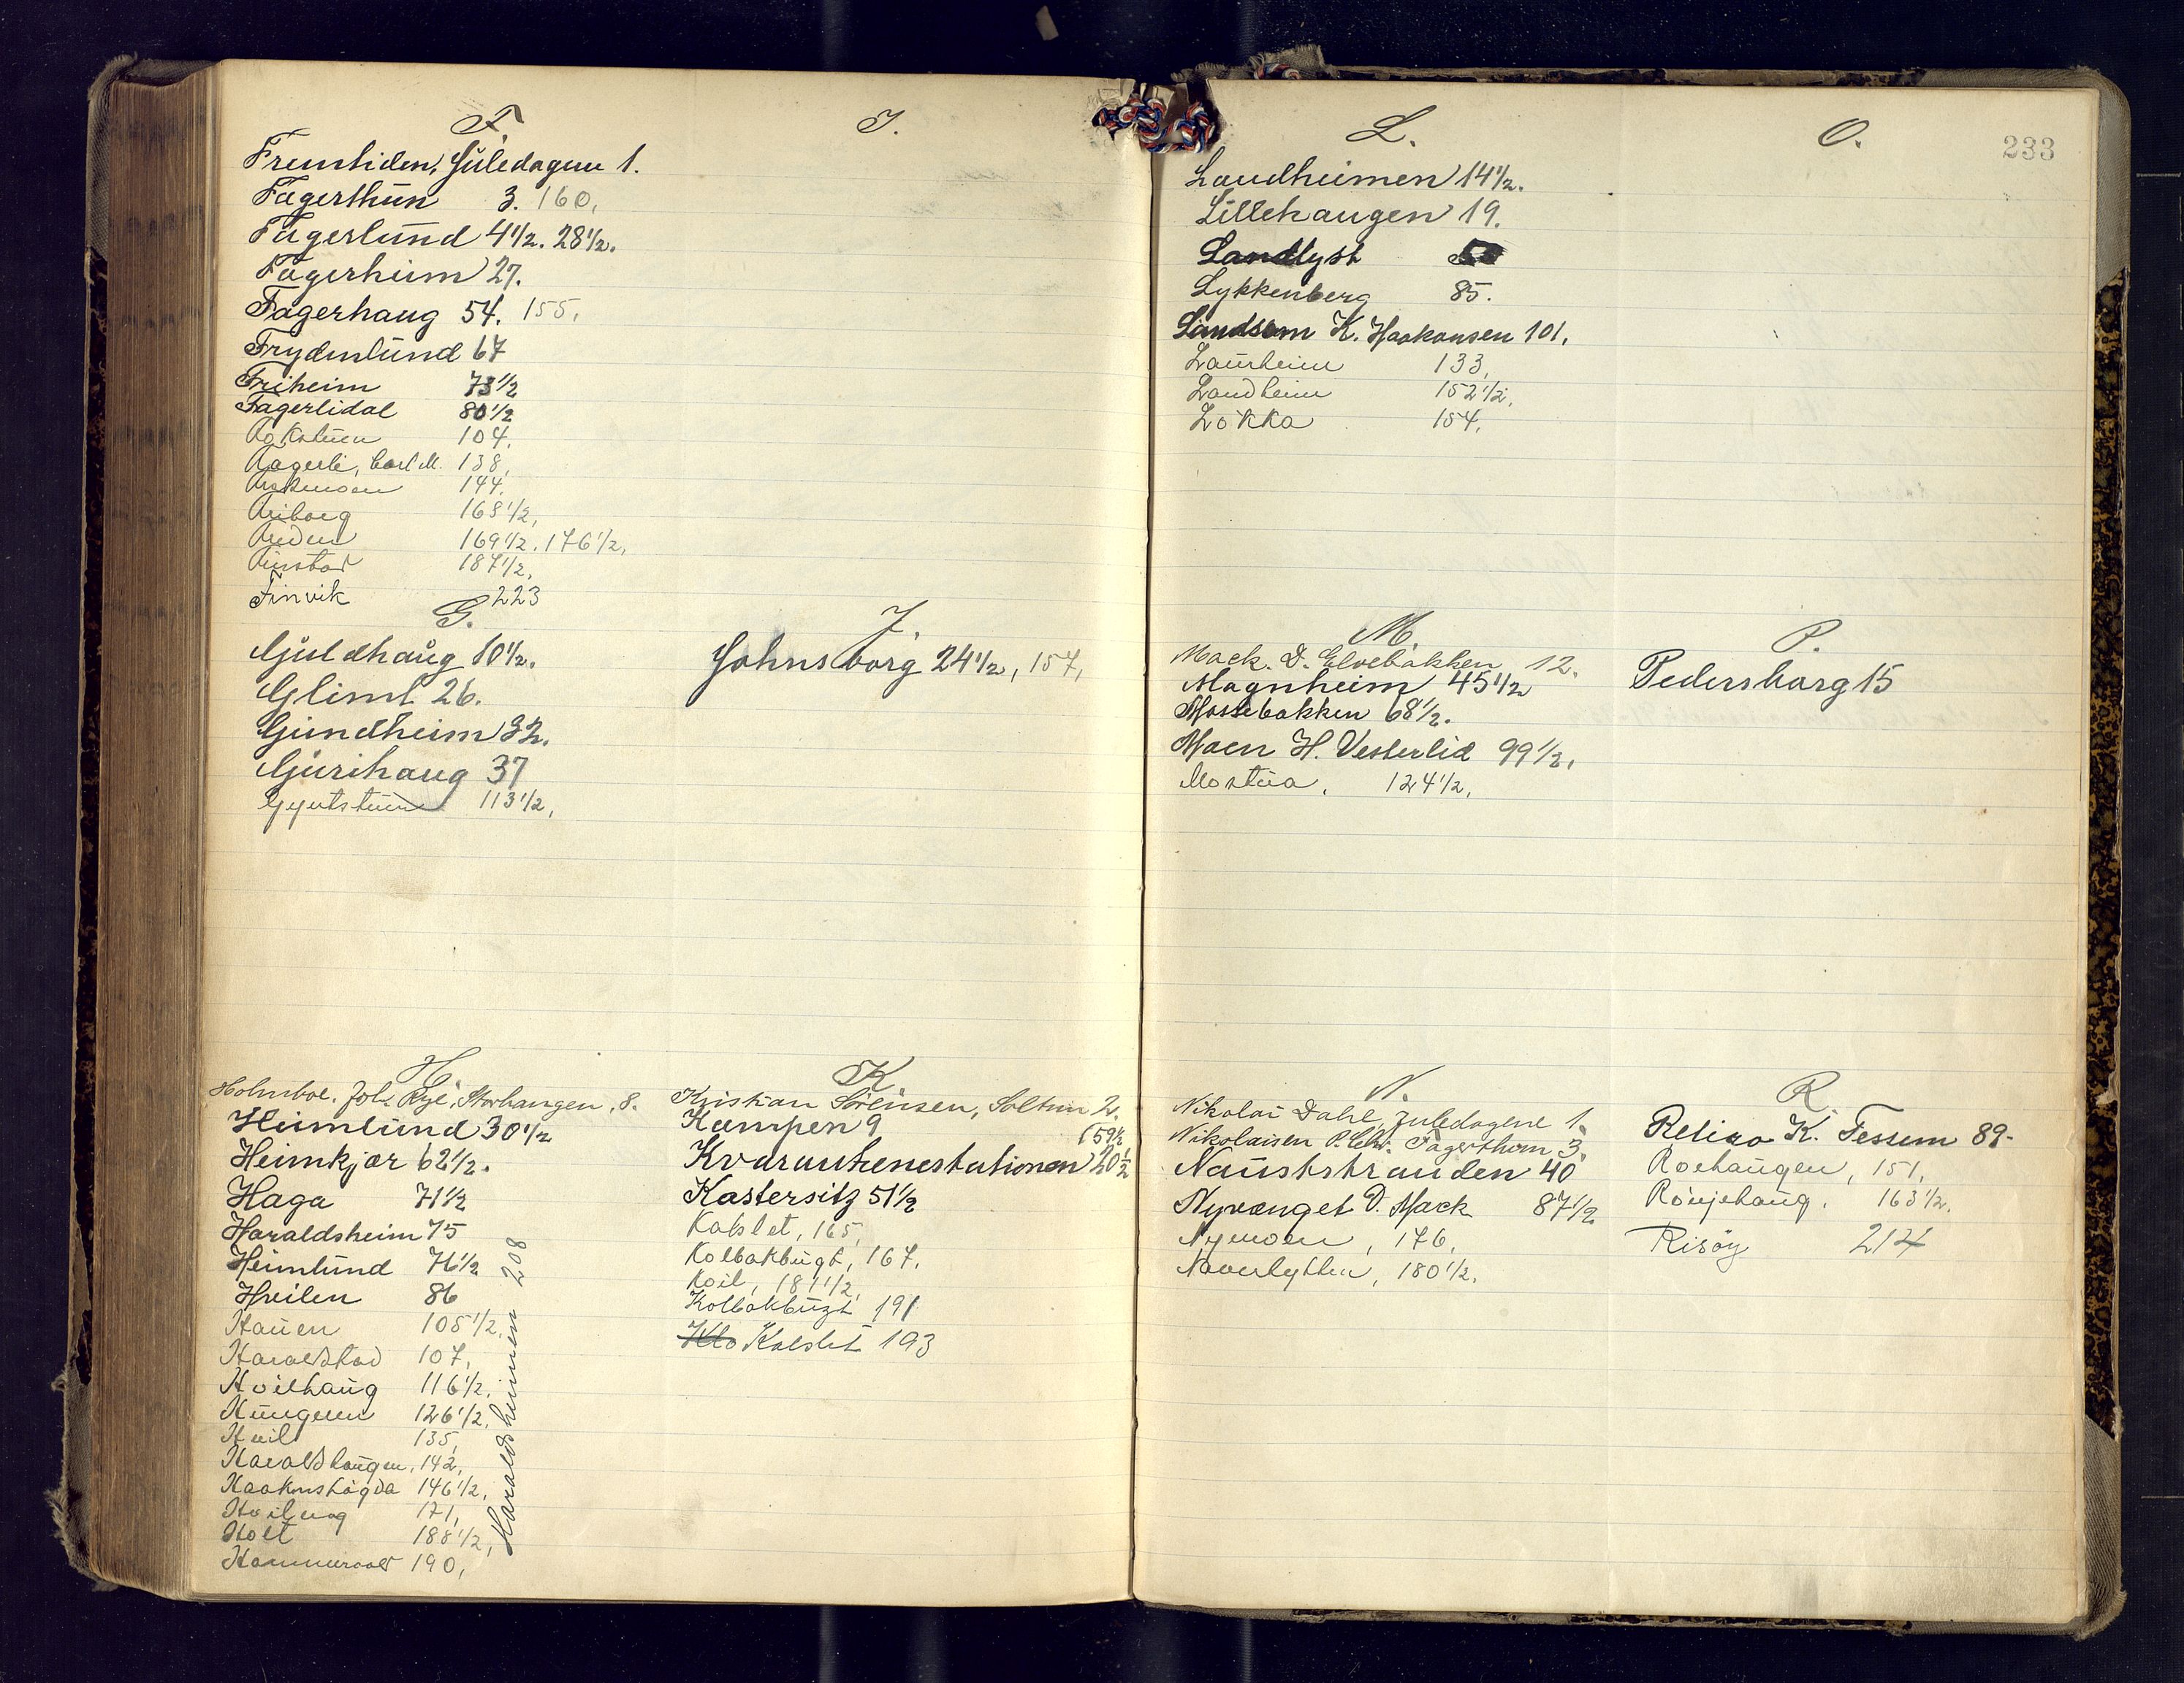 F.
Fremtiden, Juledagene 1.
Fagerthun 3. 160,
Fagerlund 4½. 28½.
Fagerheim 27.
Fagerhaug 54. 155,
Frydenlund 67
Friheim 73½
Fagerlidal 80½
104,
Fagerli, Carl M. 138,
144,
Friborg 168½,
169½, 176½,
187½,
Finvik 223
G.
Guldhaug 10½.
Glimt 26.
Gundheim 32.
Gurihaug 37
113½,
H.
Holmboe, Joh. Rye, Storhaugen, 8.
Heimlund 30½
Heimkjær 62½.
Haga 71½
Haraldsheim 75
Heimlund 76½
Hvilen 86
Hauen 105½,
Haraldstad 107,
Hvilhaug 116½,
Haugen 126½,
Hvil 135,
Haraldhaugen, 142,
Haakonshögda 146½,
171,
Holt 188½,
Hammervold 190,
Haraldsheimen 208
I.
J.
Johnsborg 24½, 157,
K.
Kristian Sörensen, Soltun 2.
Kampen 9
(59½
Kvarantenestationen 20½
Kastersitz 51½
Kalslet, 165,
Kolbakbugt, 167,
Koil, 181½,
Kolbakbugt 191
Klo Kalslet 193
233
L.
Landheimen 14½.
Lillehaugen 19.
Landlyst
Lykkenberg 85.
Landsem K. Haakonsen 101,
Laurheim 133,
Landheim 152½,
Lökka 154,
M.
Mack. D. Elvebakken 12.
Magnheim 45½
Mossebakken 68½.
Moen H. Vesterlid 99½,
Mostua, 124½,
N.
Nikolai Dahl, Juledagene 1.
Nikolaisen P. Chr. Fagerthun 3.
Naustrstranden 40
Nyvænget D. Mack 87½
Nymoen, 176,
Naverhytten, 180½,
O.
P.
Pedersborg 15
R.
Retiro K. Tessem 89.
Roehaugen, 151,
Rönjehaug, 163½,
Risöy 214